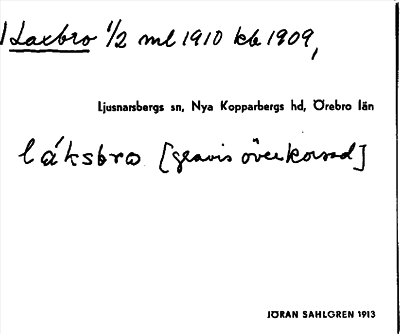 Laxbro 1/2 ml 1910 kb 1909,
Ljusnarsbergs sn, Nya Kopparbergs hd, Örebro län
láksbro [gravis överkorsad]
JÖRAN SAHLGREN 1913